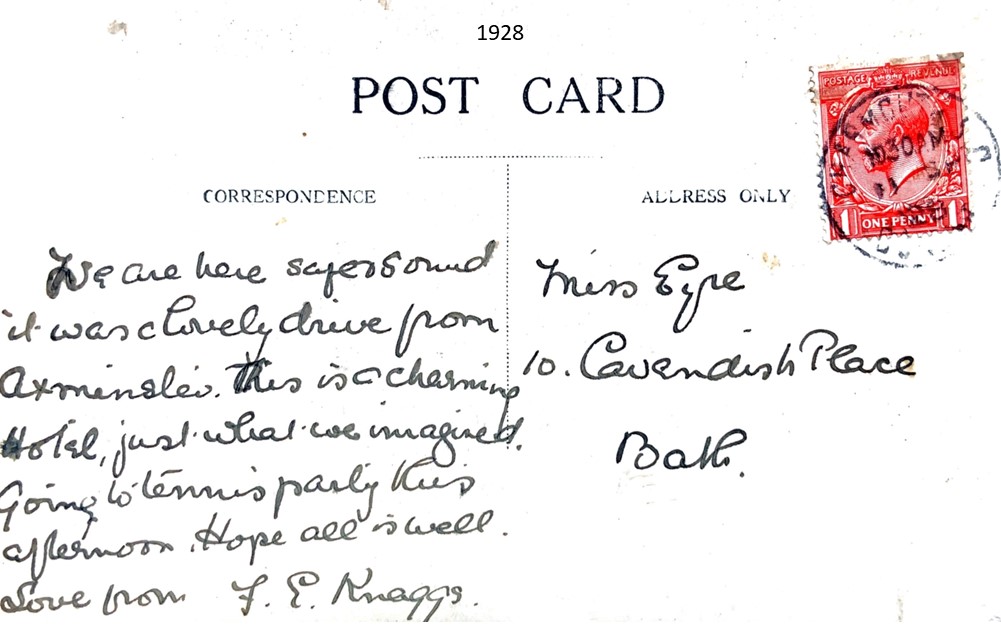 1928
POST CARD
POSTAGE REVENUE
10 30 AM
11
1 ONE PENNY 1
CORRESPONDENCE
ADDRESS ONLY
We are here safe & sound
it was a lovely drive from
Axminster. This is a charming
Hotel, just what we imagined.
Going to tennis party this
afternoon. Hope all is well.
Love from F. E. Knaggs.
Miss Eyre
10. Cavendish Place
Bath.